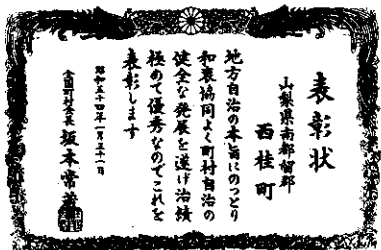 表彰状
山梨県南都留郡
西桂町
地方自治の本旨にのっとり
和衷協同よく町村自治の
健全な発展を遂げ治績
極めて優秀なのでこれを
表彰します
昭和五十四年一月三十一日
全国町村会長 坂本常蔵